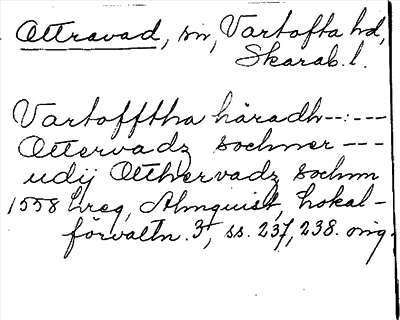 Ottravad, sn, Vartofta hd,
Skarab. l.
Vartofftha häradh--:---
Ottervadz sochner ---
udij Otthervadz sochnn
1558 Lreg, Almquist, Lokal-
förvaltn. 3, ss. 237, 238. orig.